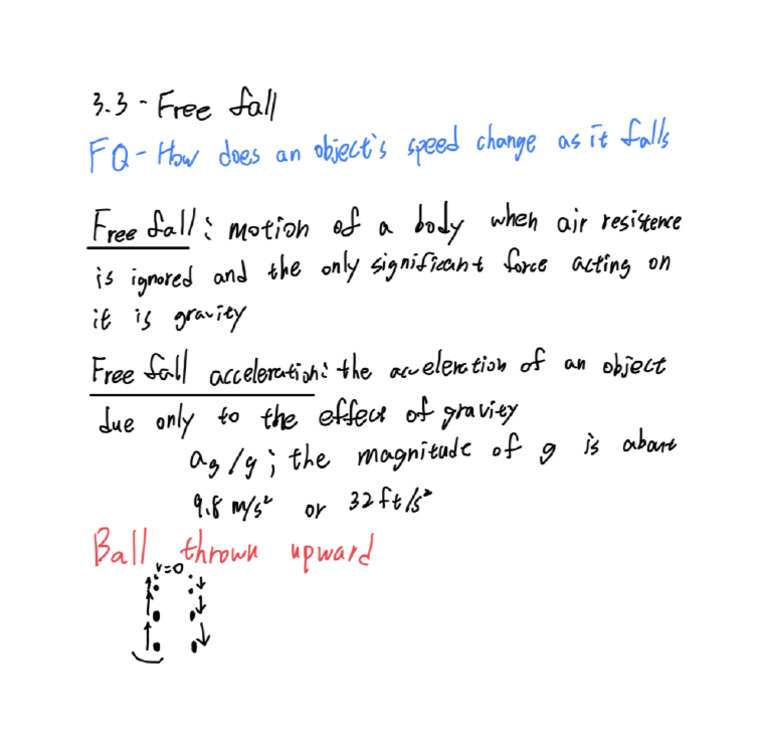 3.3 - Free fall
FQ - How does an object's speed change as it falls
Free fall: motion of a body when air resistence
is ignored and the only significant force acting on
it is gravity
Free fall acceleration: the acceleration of an object
due only to the effect of gravity
ag/g; the magnitude of g is about
9.8 m/s² or 32 ft/s²
Ball thrown upward
v=0